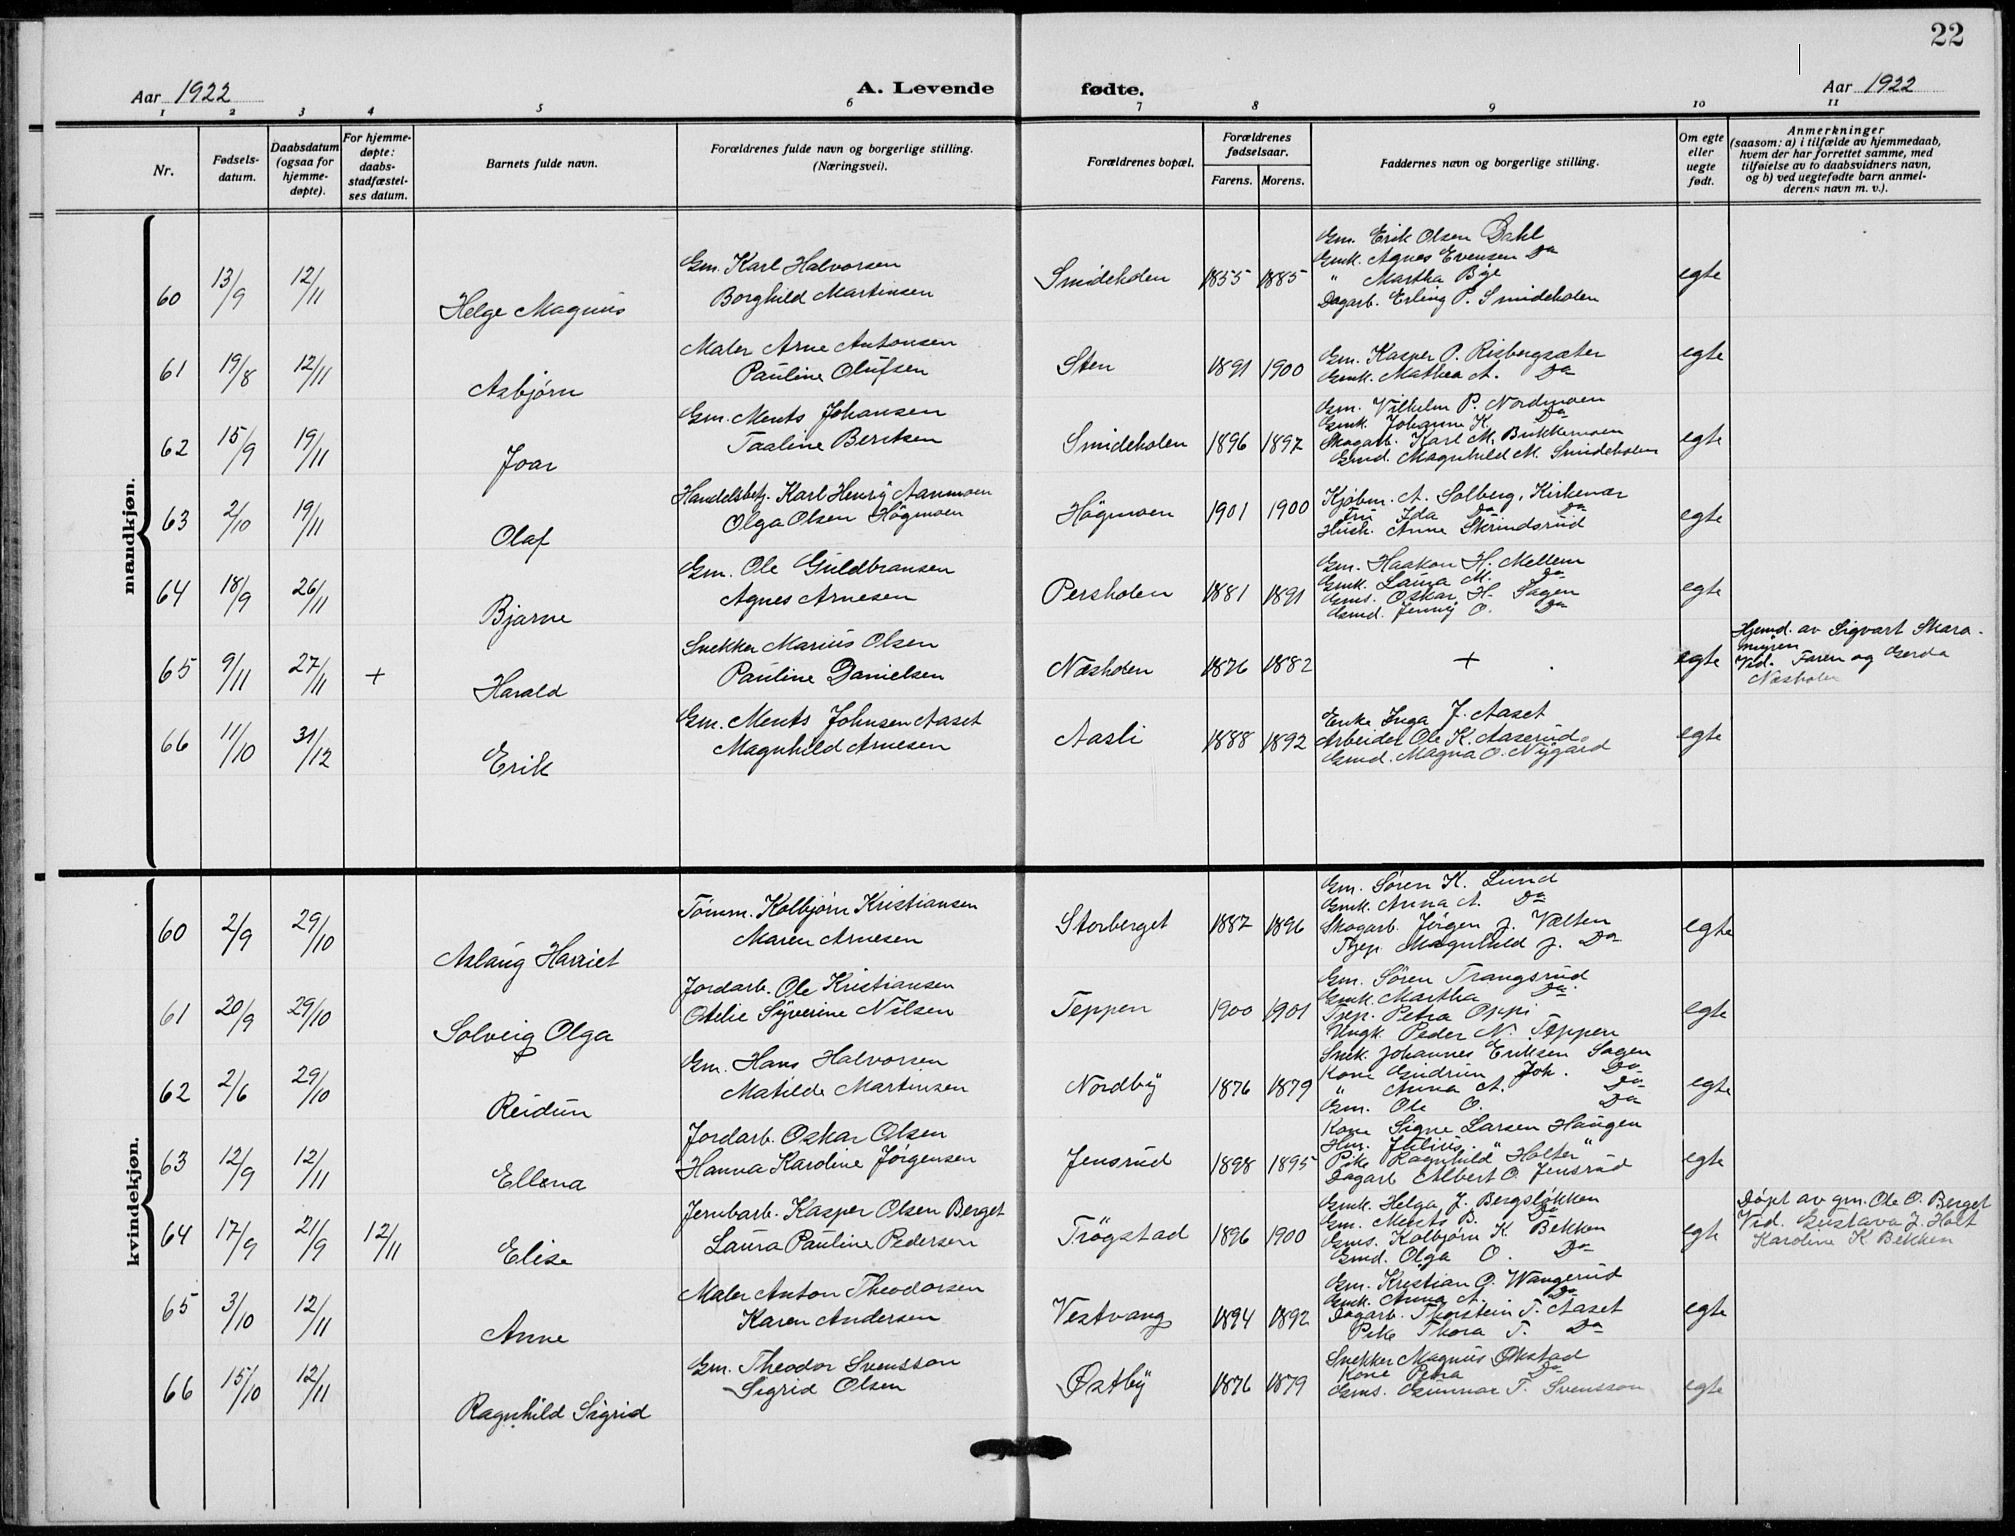 22
Aar 1922
A. Levende fødte.
Aar 1922
1 2 3 4 5 6 7 8 9 10 11
Nr.
Fødsels-
datum.
Daabsdatum
(ogsaa for
hjemme-
døpte).
For hjemme-
døpte:
daabs-
stadfæstel-
ses datum.
Barnets fulde navn.
Forældrenes fulde navn og borgerlige stilling.
(Næringsvei).
Forældrenes bopæl.
Forældrenes
fødselsaar.
Farens. Morens.
Faddernes navn og borgerlige stilling.
Om egte
eller
uegte
født.
Anmerkninger
(saasom: a) i tilfælde av hjemmedaab,
hvem der har forrettet samme, med
tilføielse av to daabsvidners navn,
og b) ved uegtefødte barn anmel-
derens navn m. v.).
mandkjøn.
60 13/9 12/11 Helge Magnus
Gm. Karl Halvorsen
Borghild Martinsen
Smideholen 1855 1885
Gm. Erik Olsen Dahl
Gmk. Agnes Evensen Do
" Martha Bye
Dagarb. Erling P. Smideholen
egte
61 19/8 12/11 Asbjørn
Maler Arne Antonsen
Pauline Olufsen
Sten 1891 1900
Gm. Kasper P. Risbergsæter
Gmk. Mathea A. Do
egte
62 15/9 19/11 Joar
Gm. Ments Johansen
Taaline Berntsen
Smideholen 1896 1897
Gm. Vilhelm P. Nordmoen
Gmk. Johanne K. Do
Skogarb. Karl M. Bukkemoen
Gmd. Magnhild M. Smideholen
egte
63 2/10 19/11 Olaf
Handelsbetj. Karl Henry Aanmoen
Olga Olsen Högmoen
Högmoen 1901 1900
Kjøbm. A. Solberg, Kirkenær
Fru Ida Do Do
Hush. Anne Skrindsrud
egte
64 18/9 26/11 Bjarne
Gm. Ole Guldbransen
Agnes Arnesen
Persholen 1881 1891
Gm. Haakon H. Mellem
Gmk. Laura M. Do
Gms. Oskar H. Sagen
Gmd. Jenny O. Do
egte
65 9/11 27/11 + Harald
Snekker Marius Olsen
Pauline Danielsen
Næsholen 1876 1882
+
egte
Hjemd. av Sigvart Skara-
myren
Vid. Faren og Gerda
Næsholen
66 11/10 31/12 Erik
Gm. Ments Johnsen Aaset
Magnhild Arnesen
Aasli 1888 1892
Enke Inga J. Aaset
Arbeider Ole K. Aaserud
Gmd. Magna O. Nygard
egte
kvindekjøn.
60 2/9 29/10 Aslaug Harriet
Tømm. Kolbjørn Kristiansen
Maren Arnesen
Storberget 1887 1896
Gm. Søren K. Lund
Gmk. Anna A. Do
Skogarb. Jörgen J. Valten
Tjep. Magnhild J. Do
egte
61 20/9 29/10 Solveig Olga
Jordarb. Ole Kristiansen
Otelie Syverine Nilsen
Teppen 1900 1901
Gm. Søren Trangsrud
Gmk. Martha Do
Tjep. Petra Oppi
Ungk. Peder N. Teppen
egte
62 2/6 29/10 Reidun
Gm. Hans Halvorsen
Matilde Martinsen
Nordby 1876 1879
Snek. Johannes Eriksen Sagen
Kone Gudrun Joh. Do
" Anna A. Do
Gm. Ole O. Do
egte
63 12/9 12/11 Ellena
Jordarb. Oskar Olsen
Hanna Karoline Jörgensen
Jensrud 1898 1895
Kone Signe Larsen Haugen
Hm. Julius " "
Pike Ragnhild Holter
Dagarb Albert O. Jensrud
egte
64 17/9 21/9 12/11 Elise
Jernbarb. Kasper Olsen Berget
Laura Pauline Pedersen
Trögstad 1896 1900
Gmk. Helga J. Bergsløkken
Gm. Ments B. Do
Gms. Kolbjørn K. Bekken
Gmd. Olga O. Do
egte
Døpt av gm. Ole O. Berget
Vid. Gustava J. Holt
Karoline K Bekken
65 3/10 12/11 Anne
Maler Anton Theodorsen
Karen Andersen
Vestvang 1894 1892
Gm. Kristian O. Wangerud
Gmk. Anna A. Do
Dagarb. Thorstein T. Aaset
Pike Thora T. Do
egte
66 15/10 12/11 Ragnhild Sigrid
Gm. Theodor Svensson
Sigrid Olsen
Østby 1876 1879
Snekker Magnus Økstad
Kone Petra Do
Gms. Gunnar T. Svensson
egte